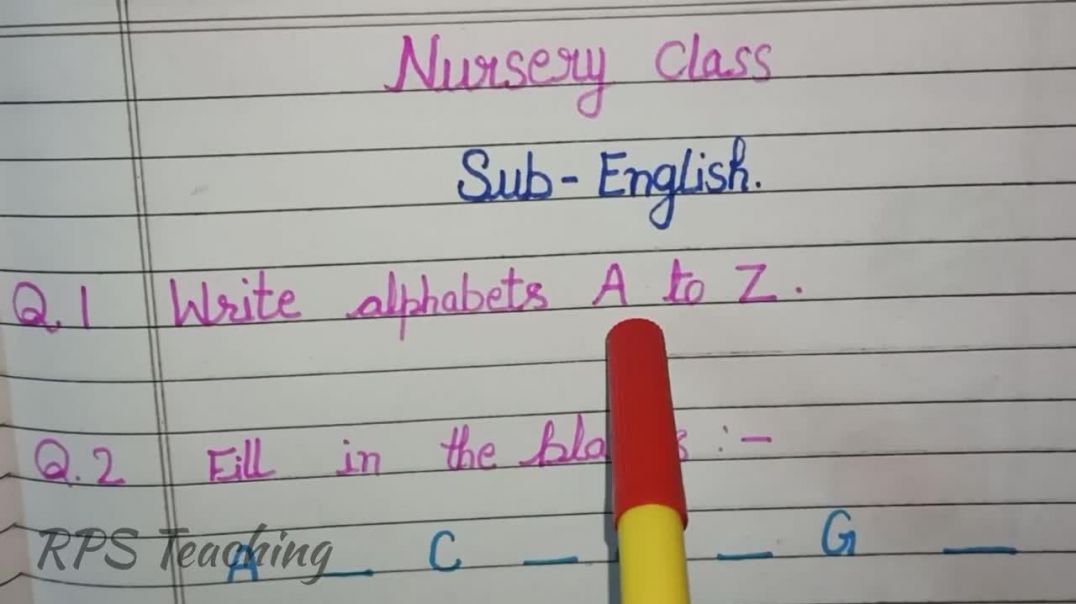 Nursery Class
Sub- English.
Q.1 Write alphabets A to Z.
Q.2 Fill in the :-
A _ C _ _ G _
RPS Teaching